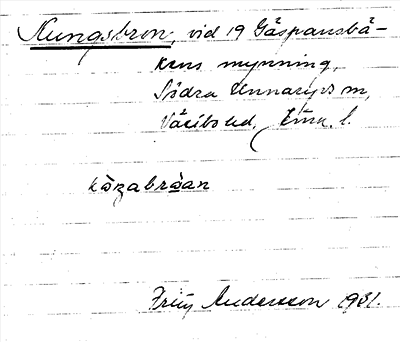 Kungsbron, vid 19 Gåspansbä-
kens mynning,
Södra Unnaryds sn,
Västbo hd,
kọ̀ŋabròan
Andersson 1931.